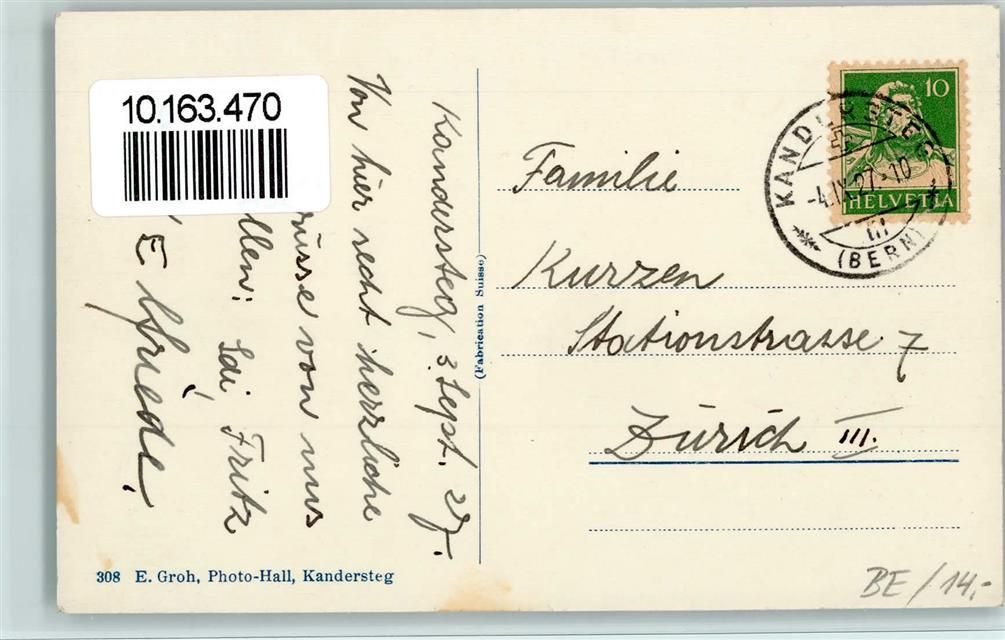 10.163.470
Kandersteg, 3. Sept. 27.
Von hier recht herzliche
von uns
Fritz
308 E. Groh, Photo-Hall, Kandersteg
(Fabrication Suisse)
10
HELVETIA
KANDERSTEG
-4.IX.27.-10
(BERN)
Familie
Kurzen
Stationstrasse 7
Zürich III.
BE / 14,-